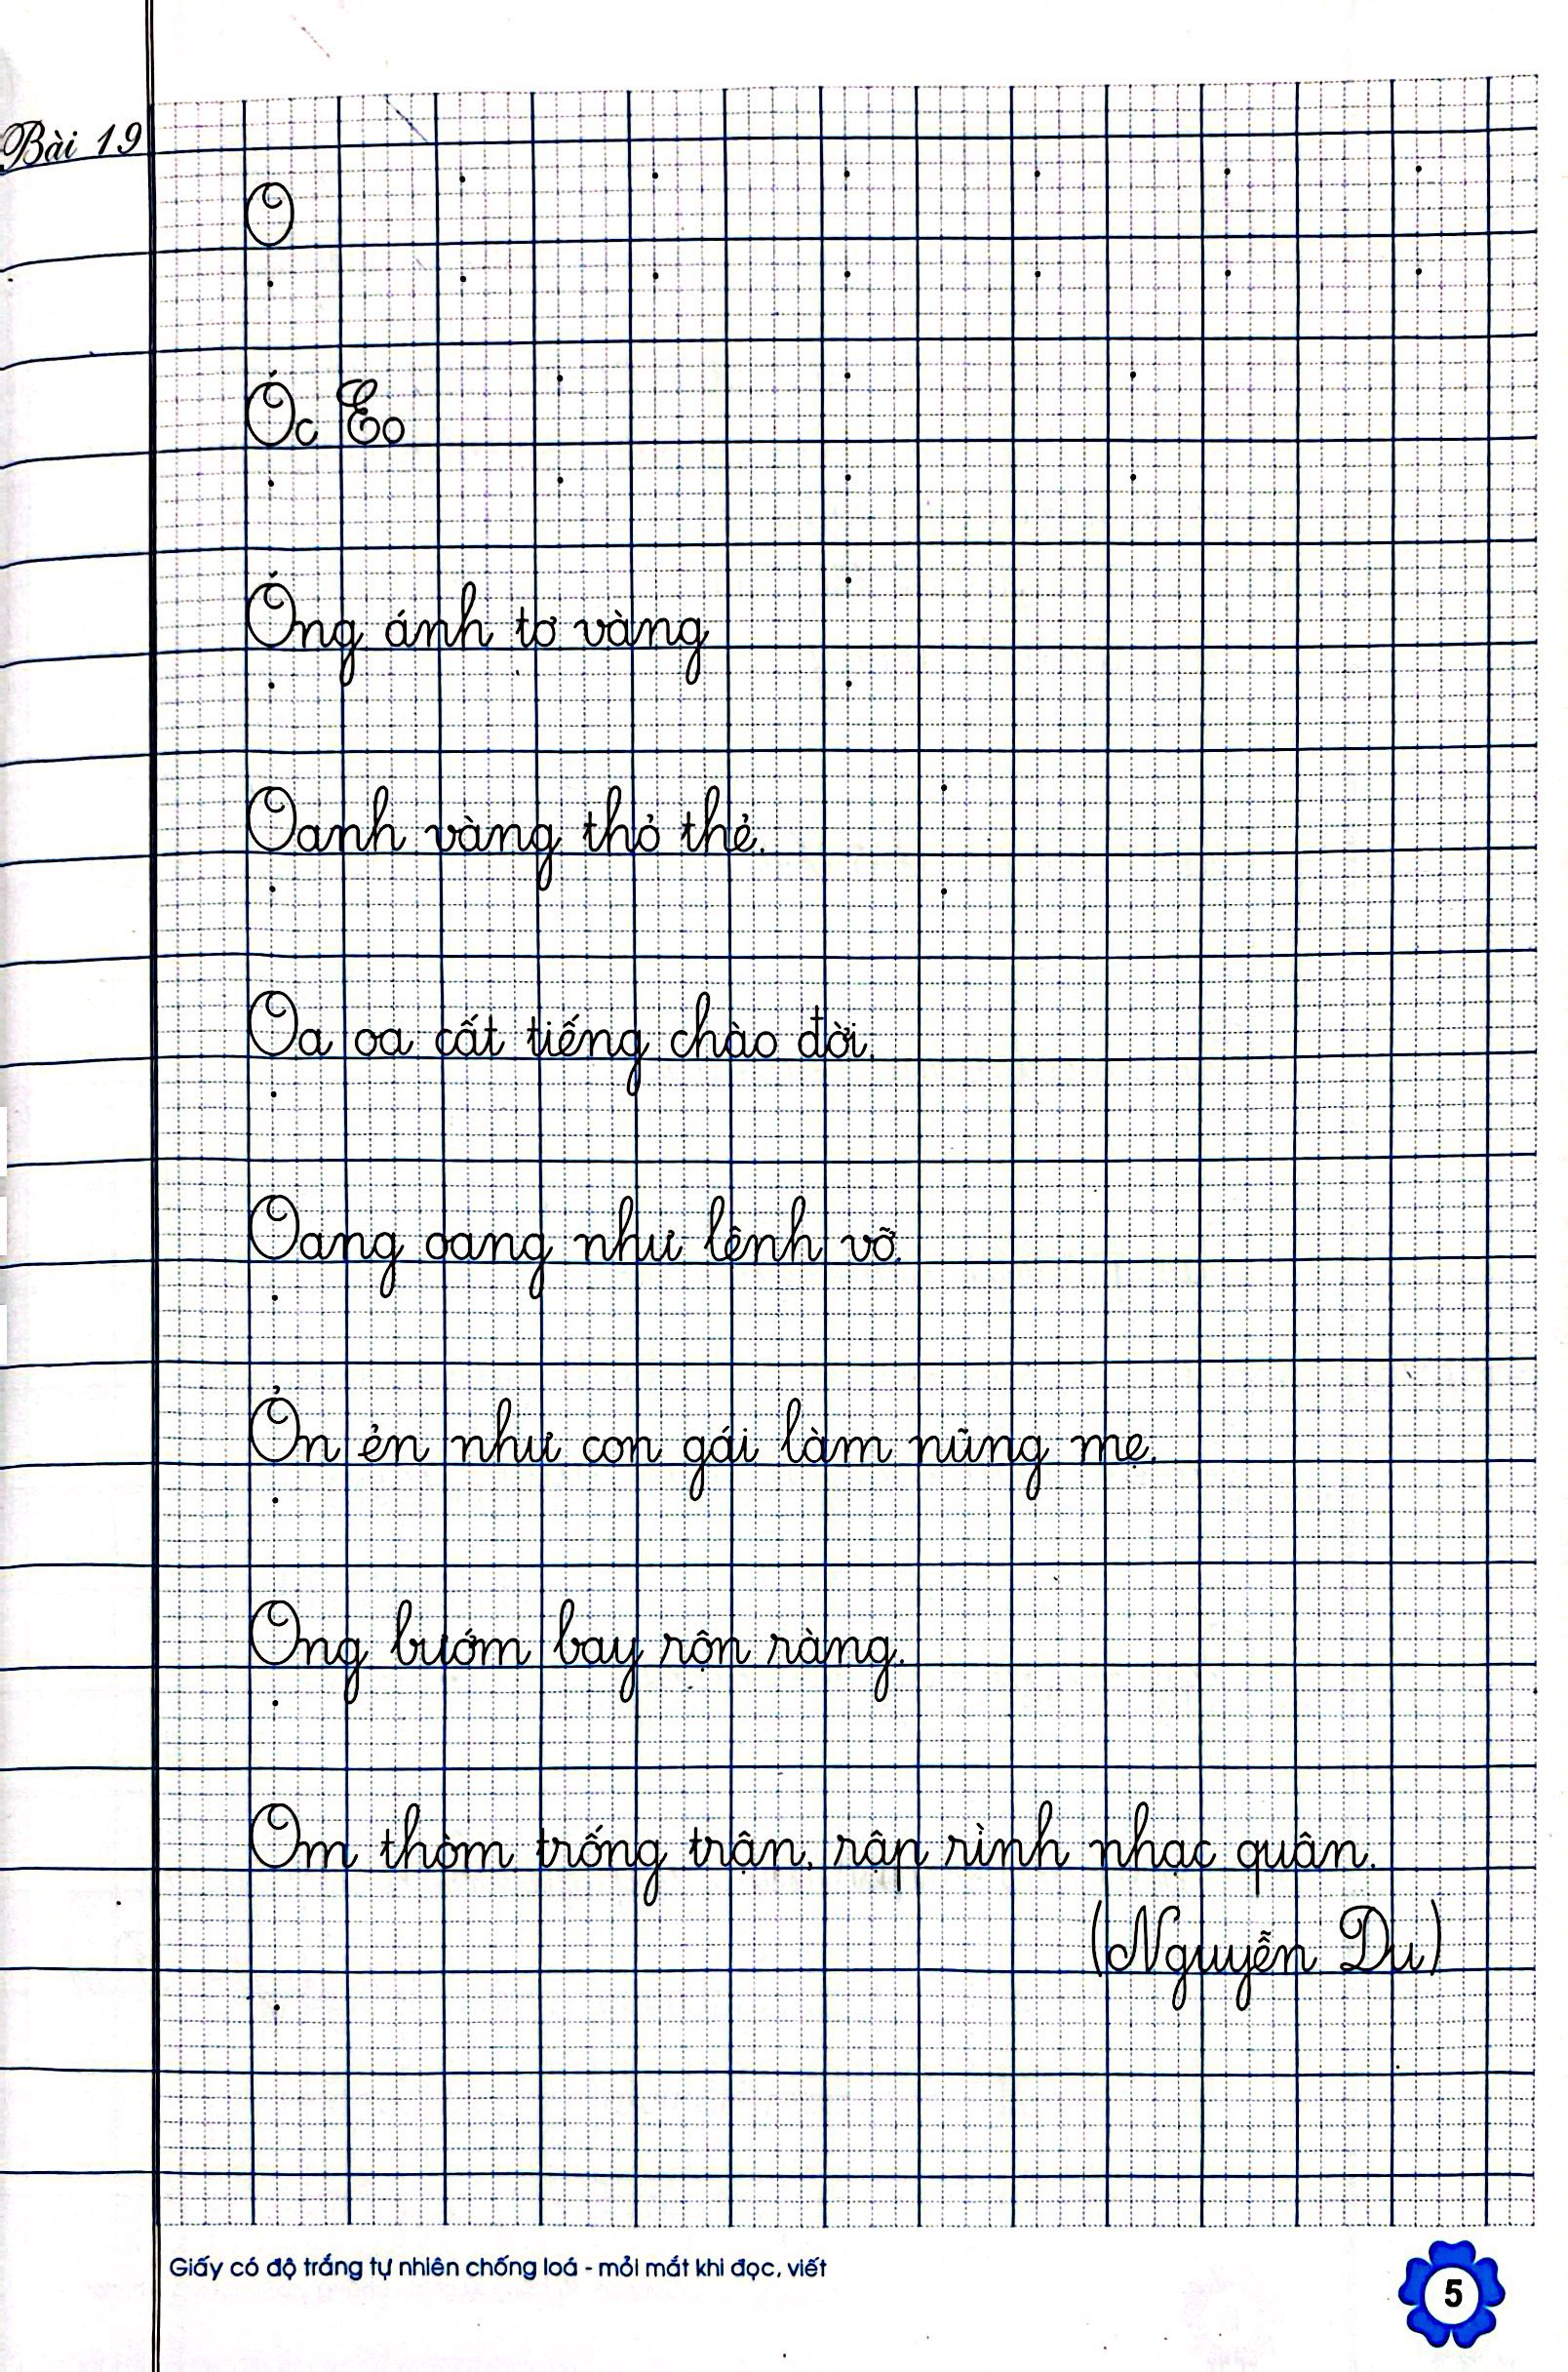 Bài 19
O
Óc Eo
Óng ánh tơ vàng
Oanh vàng thỏ thẻ.
Oa oa cất tiếng chào đời.
Oang oang như lệnh vỡ.
Ỏn ẻn như con gái làm nũng mẹ.
Ong bướm bay rộn ràng.
Om thòm trống trận, rập rình nhạc quân.
(Nguyễn Du)
Giấy có độ trắng tự nhiên chống loá - mỏi mắt khi đọc, viết
5